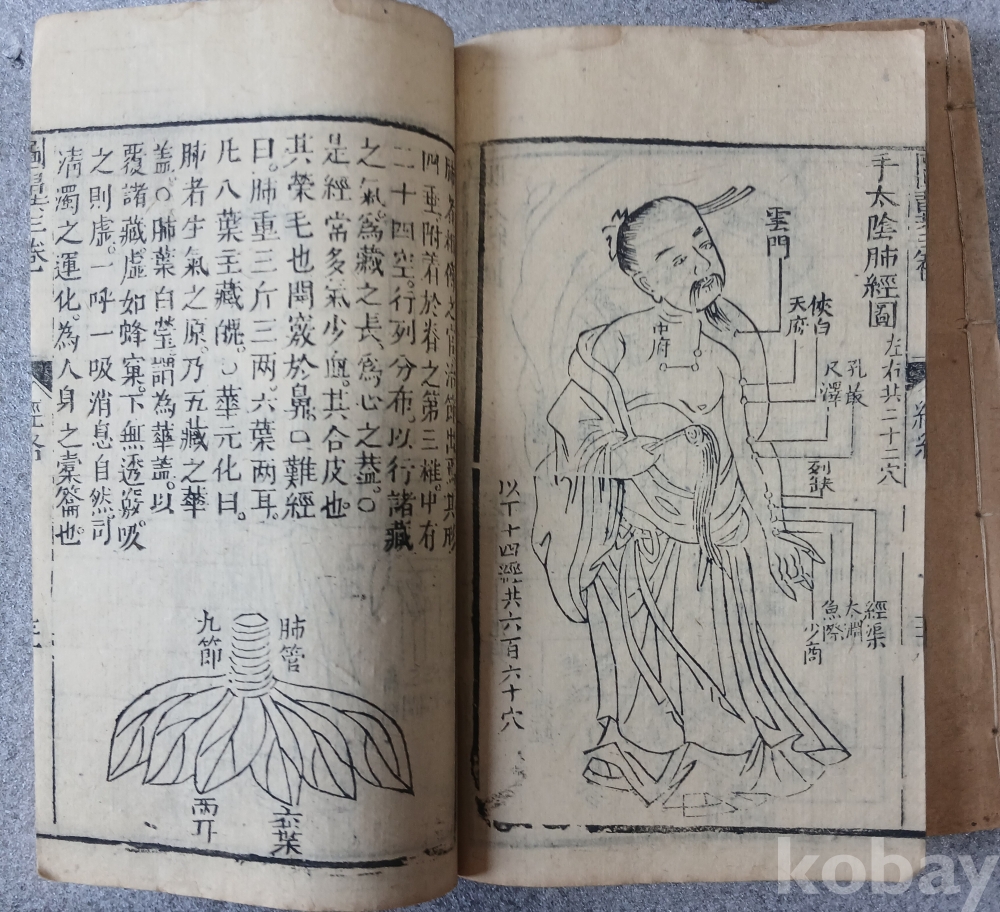 手太陰肺經圖
左右共二十二穴
雲門
中府
俠白
天府
孔最
尺澤
列缺
經渠
太淵
魚際
少商
以下十四經共六百六十穴
四垂附着於脊之第三椎中有
二十四空。行列分布以行諸藏
之氣。爲藏之長、爲心之葢。○
是經常多氣少血。其合皮也。
其榮毛也開竅於鼻。○難經
曰。肺重三斤三两。六葉两耳。
凡八葉主藏魄。○華元化曰。
肺者生氣之原。乃五藏之華
葢。○肺葉白瑩謂為華葢。以
覆諸藏。虛如蜂窠。下無透竅。吸
之則虛。一呼一吸消息自然司
清濁之運化。為人身之橐籥也。
肺管
九節
六葉
两耳
經絡
kobay